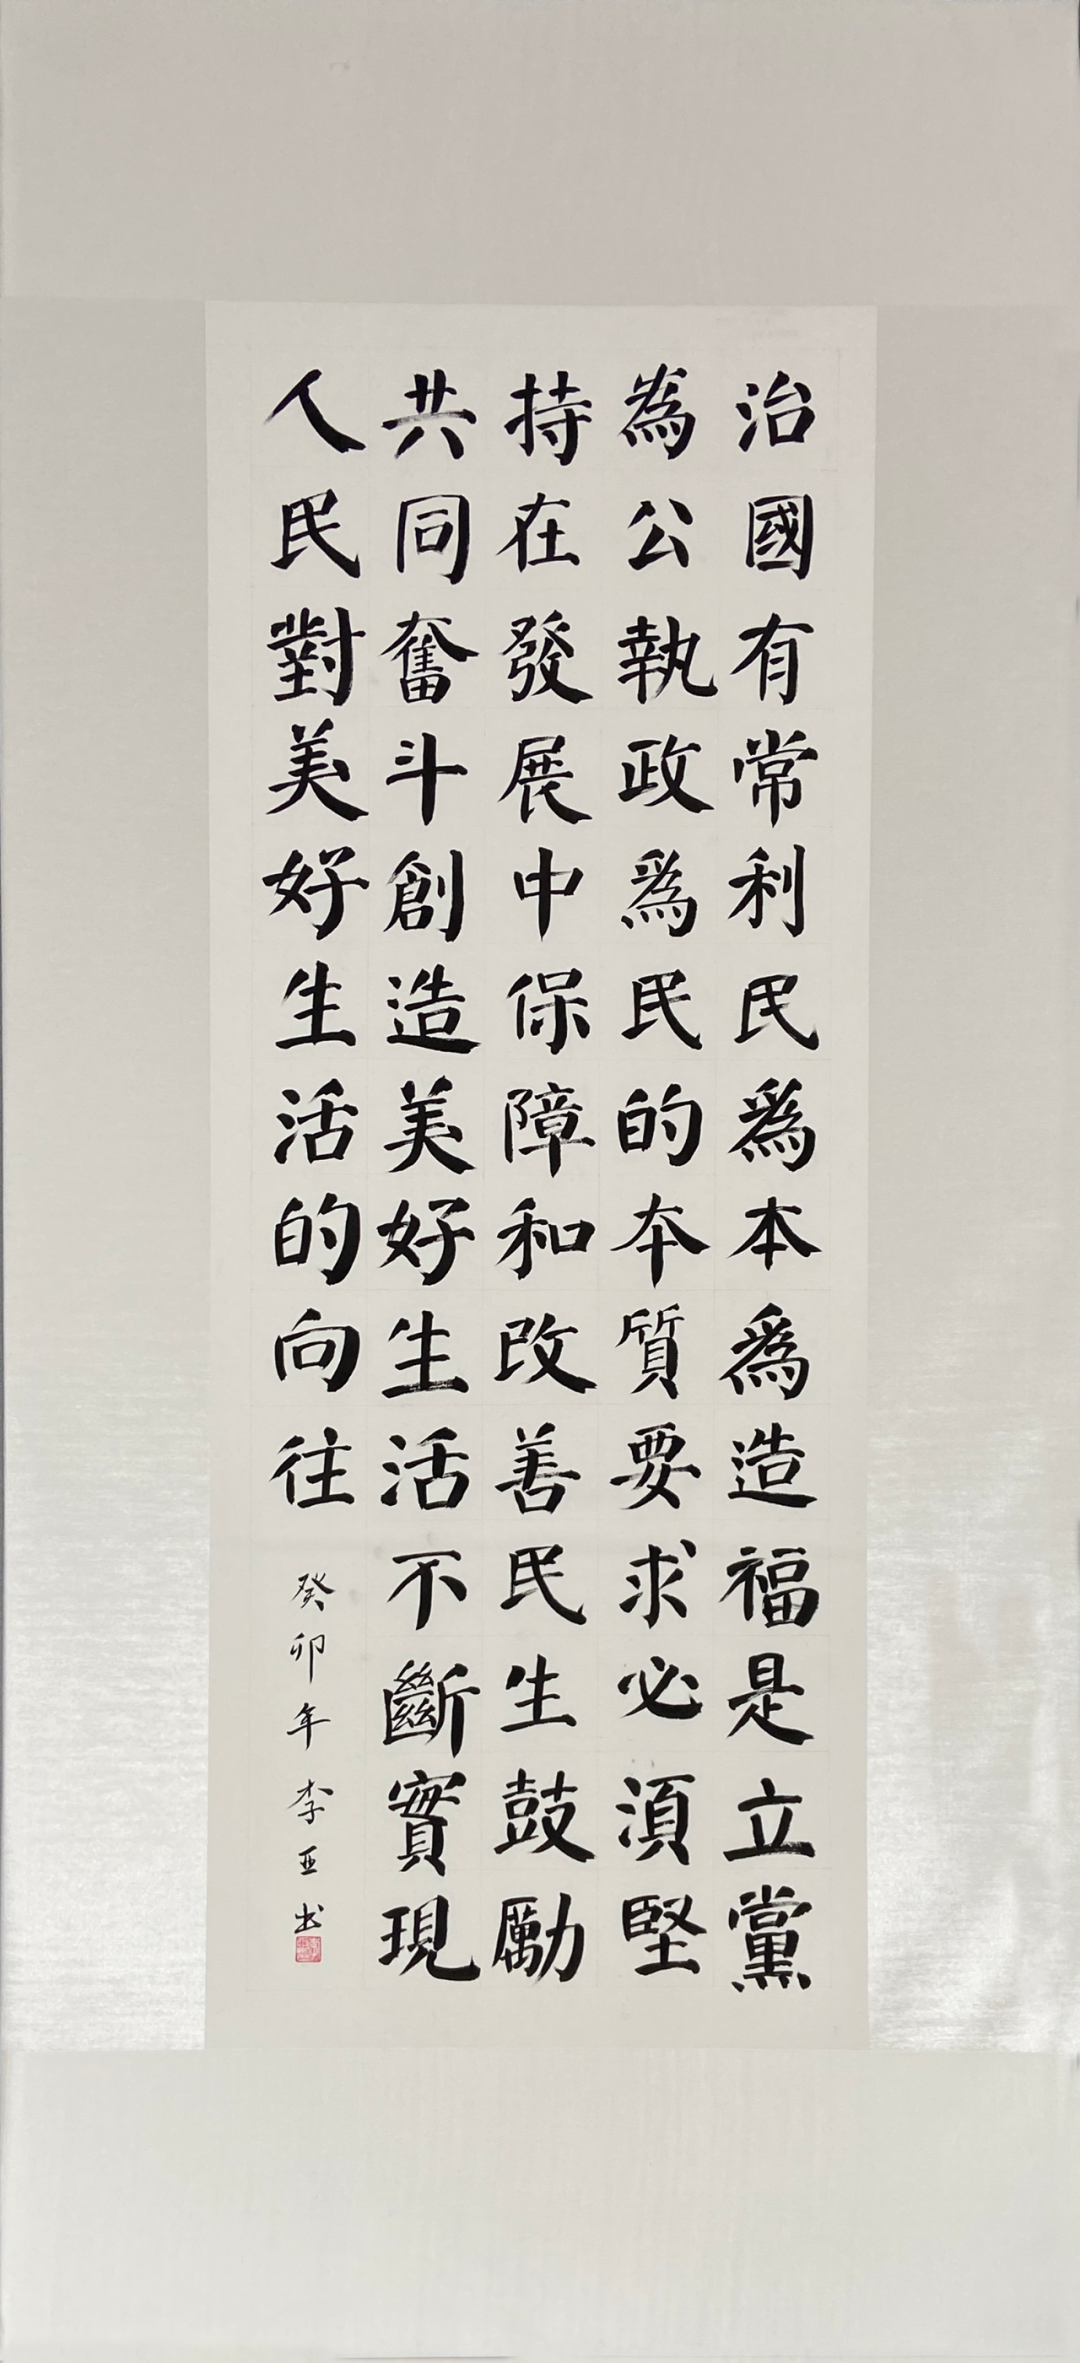 治國有常利民爲本爲造福是立黨
為公執政爲民的本質要求必須堅
持在發展中保障和改善民生鼓勵
共同奮斗創造美好生活不斷實現
人民對美好生活的向往
癸卯年李亚书